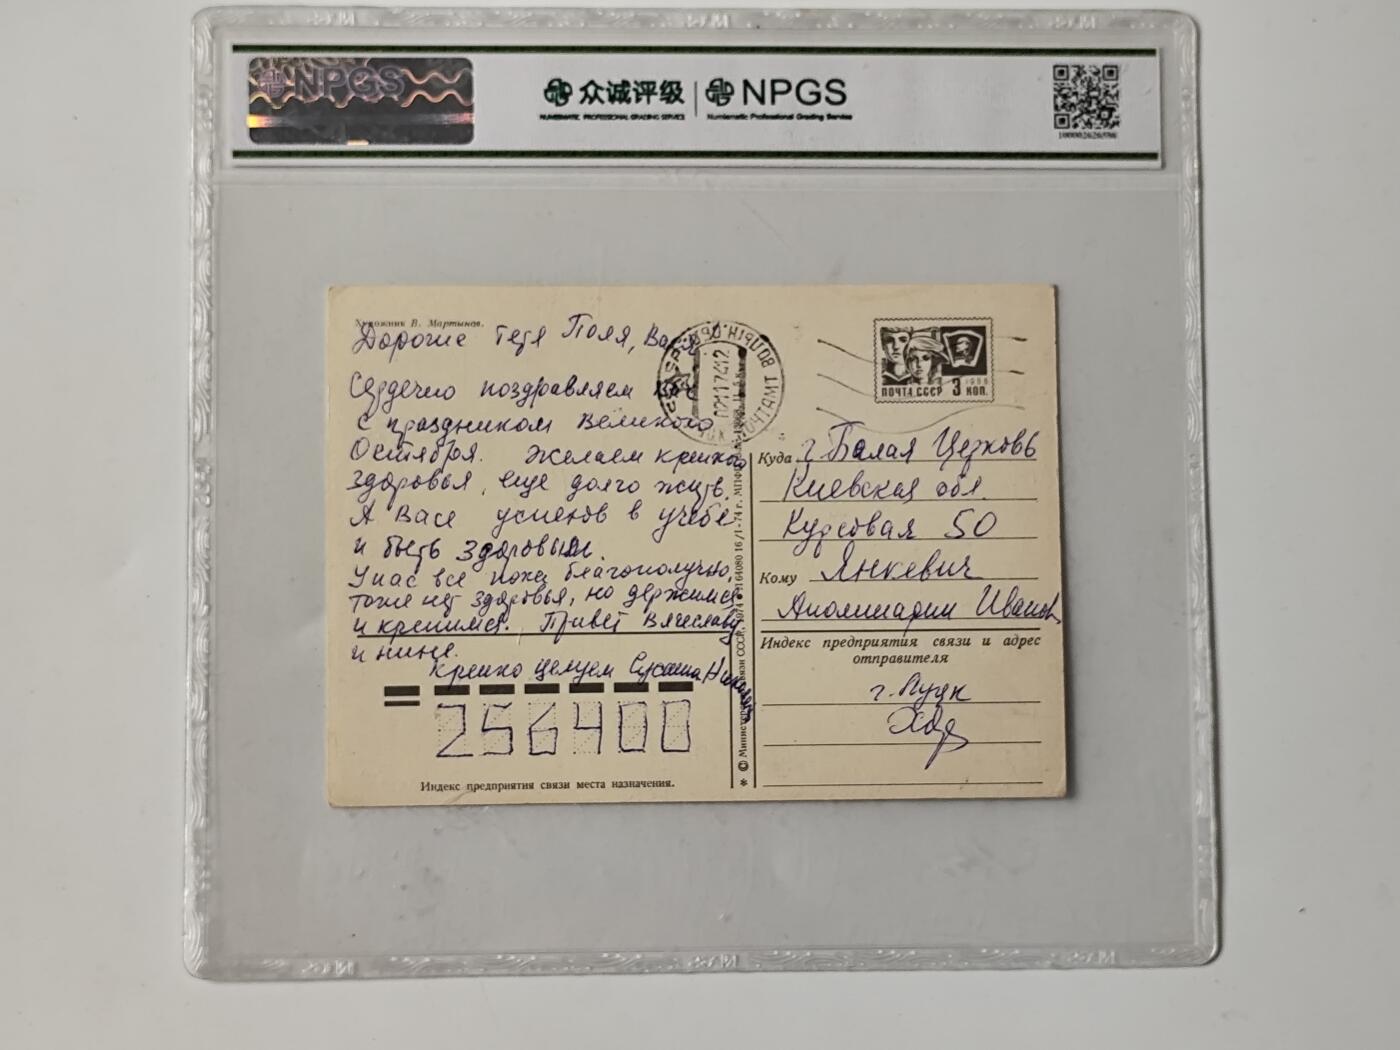 NPGS
众诚评级 NPGS
NUMISMATIC PROFESSIONAL GRADING SERVICE Numismatic Professional Grading Service
Художник В. Мартынов.
Дорогие тетя Поля, Вася
Сердечно поздравляем Вас
с праздником Великого
Октября. Желаем крепкого
здоровья, еще долго жить.
А Васе успехов в учебе
и быть здоровым.
У нас все пока благополучно,
тоже нет здоровья, но держимся
и крепимся. Привет Вячеславу
и Нине.
Крепко целуем
256400
Индекс предприятия связи места назначения.
ПОЧТА СССР 3 коп.
1966
Куда г. Белая Церковь
Киевская обл.
Курсовая 50
Кому Янкевич
Индекс предприятия связи и адрес
отправителя
г. Луцк